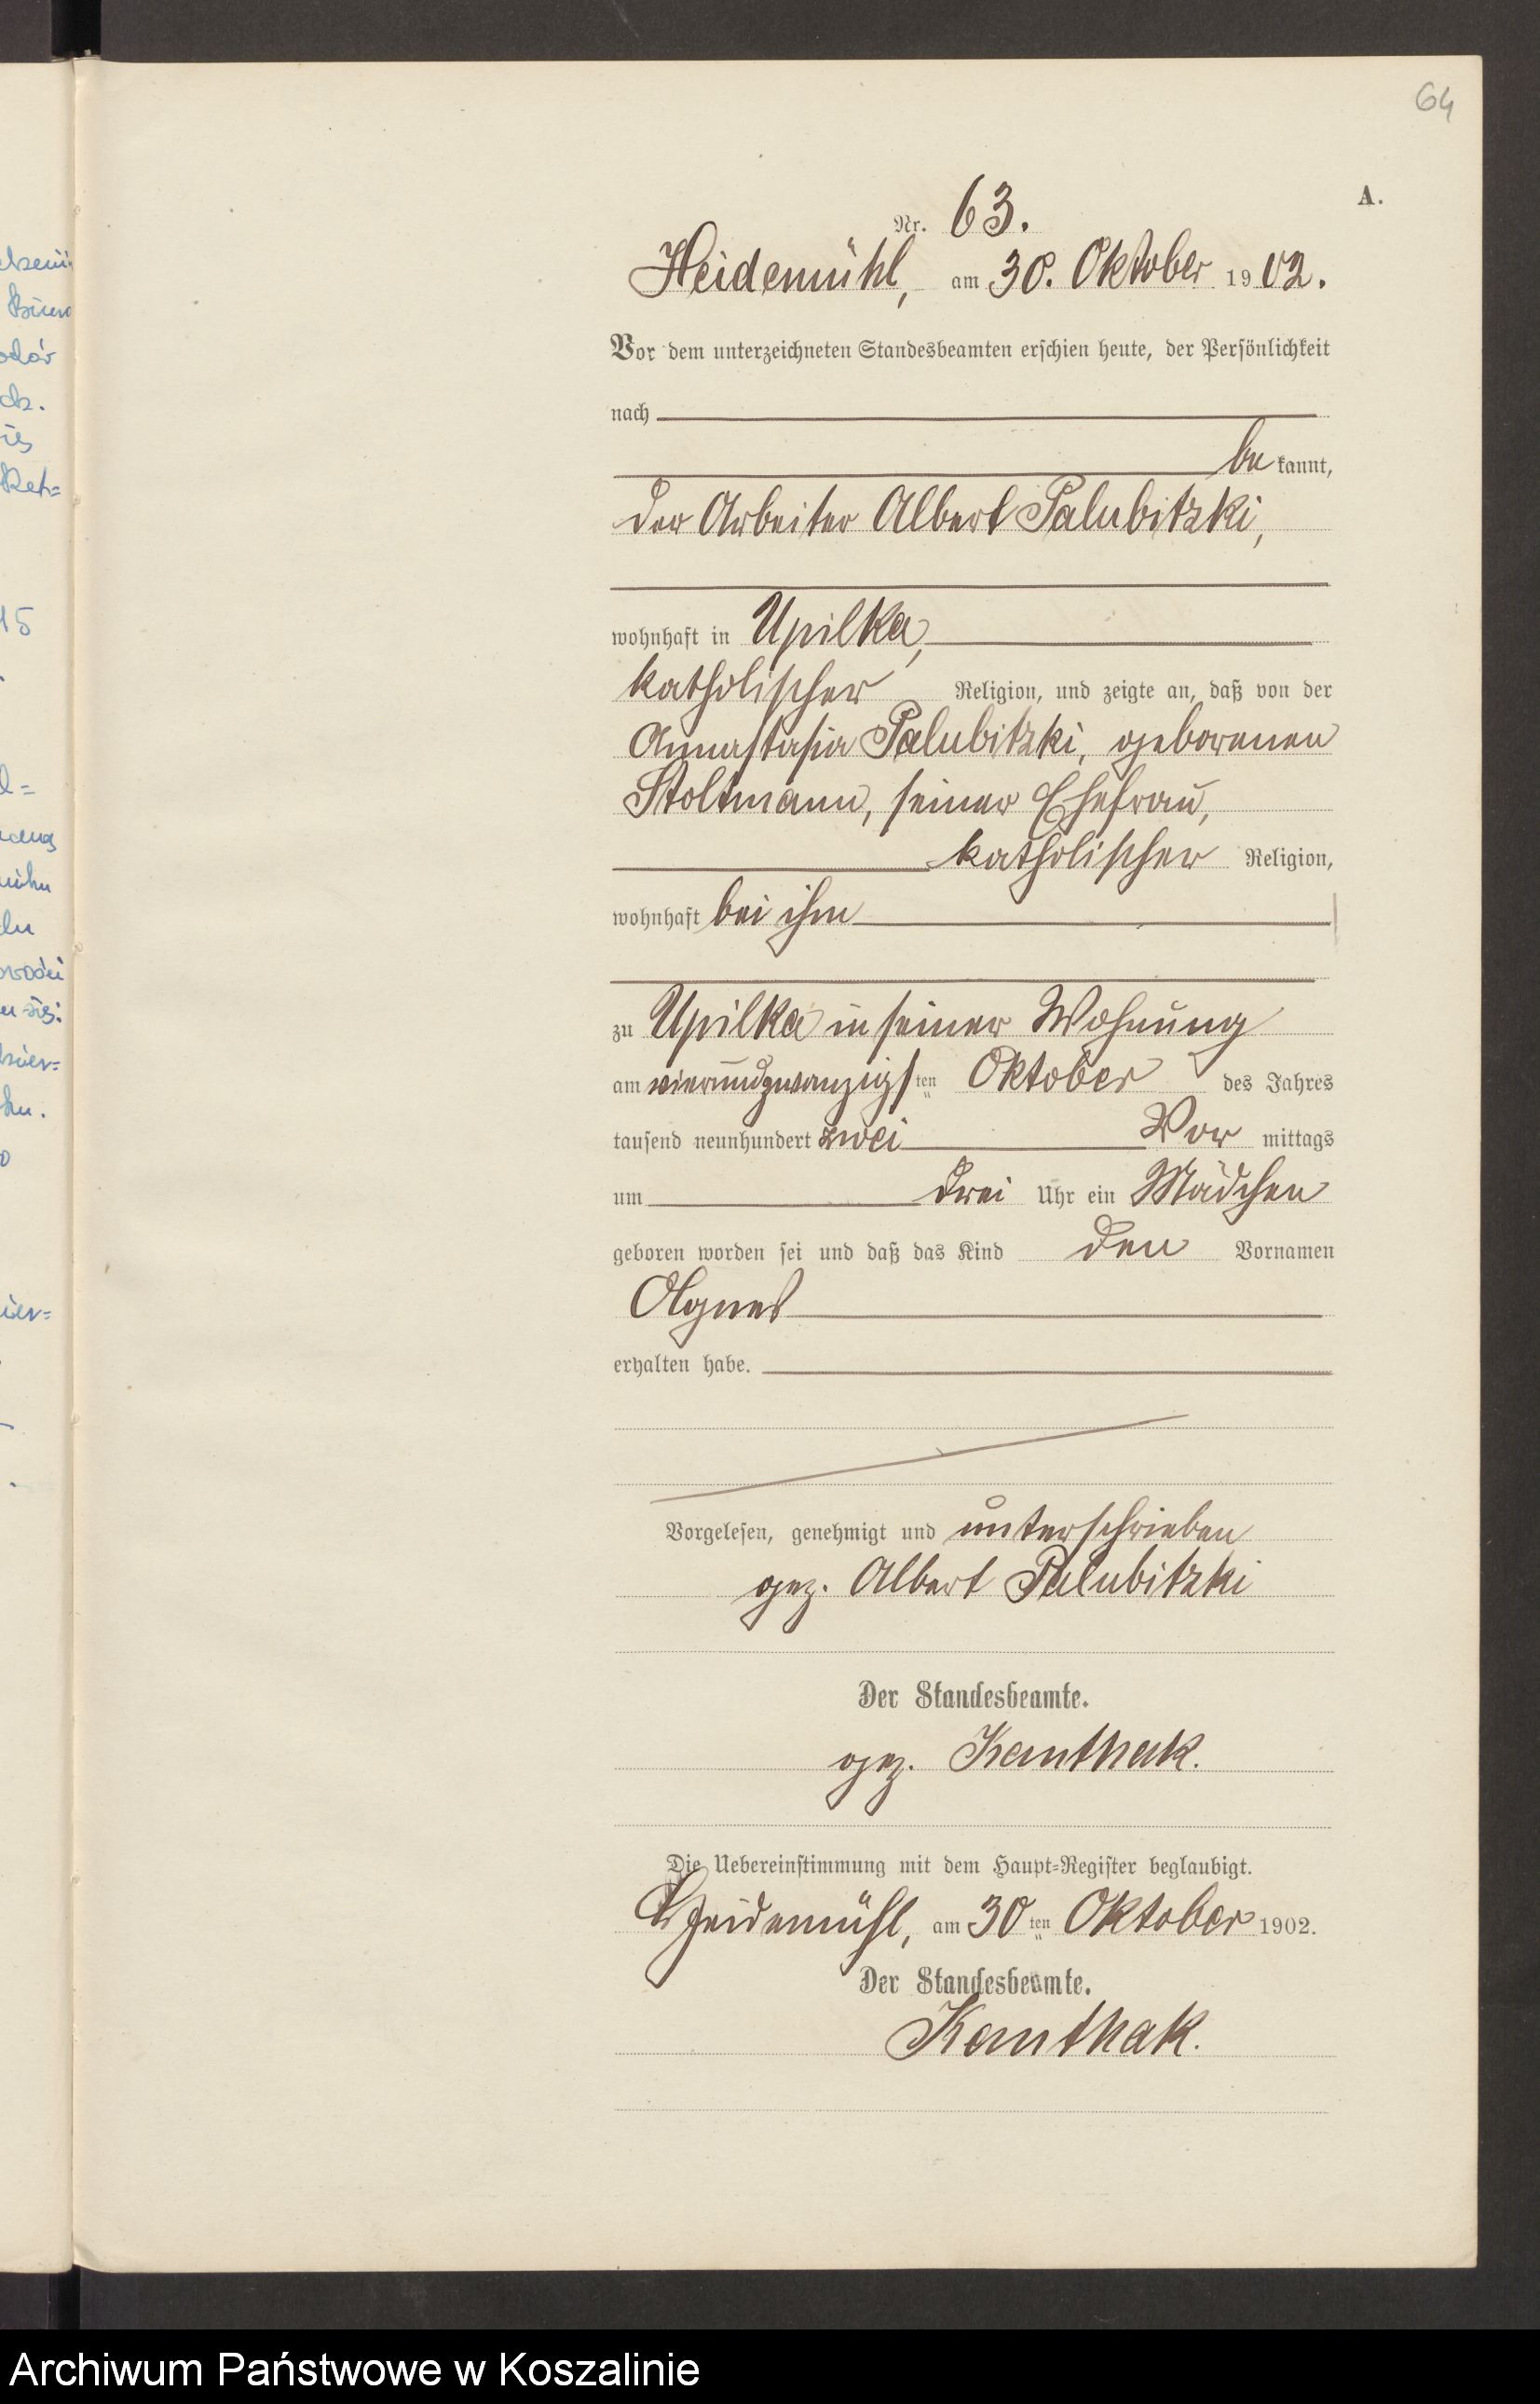 64
A.
Nr. 63.
Heidemühl, am 30. Oktober 1902.
Vor dem unterzeichneten Standesbeamten erschien heute, der Persönlichkeit
nach
be kannt,
der Arbeiter Albert Palubitzki,
wohnhaft in Upilka,
katholischer Religion, und zeigte an, daß von der
Annastasia Palubitzki, geborenen
Stoltmann, seiner Ehefrau,
katholischer Religion,
wohnhaft bei ihm
zu Upilka in seiner Wohnung
am vierundzwanzigsten Oktober des Jahres
tausend neunhundert zwei Vor mittags
um drei Uhr ein Mädchen
geboren worden sei und daß das Kind den Vornamen
Agnes
erhalten habe.
Vorgelesen, genehmigt und unterschrieben
gez. Albert Palubitzki
Der Standesbeamte.
gez. Kanthak.
Die Uebereinstimmung mit dem Haupt-Register beglaubigt.
Heidemühl, am 30ten Oktober 1902.
Der Standesbeamte.
Kanthak.
15
Archiwum Państwowe w Koszalinie